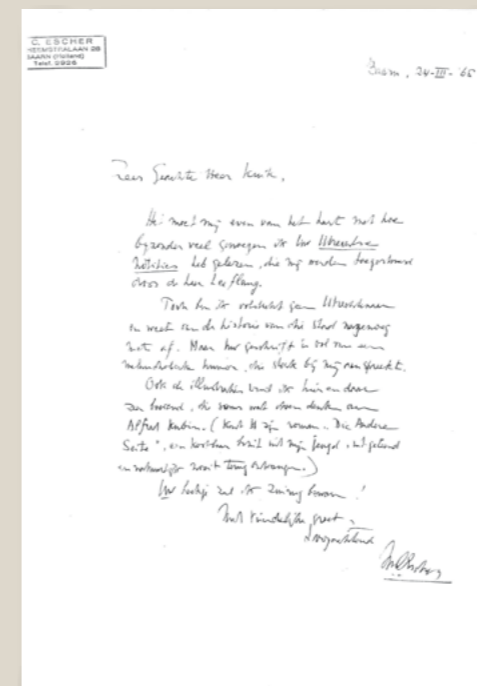 C. ESCHER
BAARN (Holland)
Telef. 2926
Baarn, 24-III-'65
Zeer Geachte Heer Kuik,
Het moet mij even van het hart met hoe
bijzonder veel genoegen ik Uw Utrechtse
Notities heb gelezen, die mij werden toegestuurd
door de heer Leeflang.
Toch ben ik volstrekt geen Utrechtenaar
en weet van de historie van die stad nagenoeg
niets af. Maar Uw geschrift is vol van een
melancholieke humor, die sterk bij mij aanspreekt.
Ook de illustraties vind ik hier en daar
zeer boeiend, die soms wat doen denken aan
Alfred Kubin. (Kent U zijn roman "Die Andere
Seite", een kostbaar bezit uit mijn jeugd, uitgeleend
en natuurlijk nooit terug ontvangen.)
Uw boekje zal ik zuinig bewaren!
Met vriendelijke groet,
hoogachtend
MCEscher